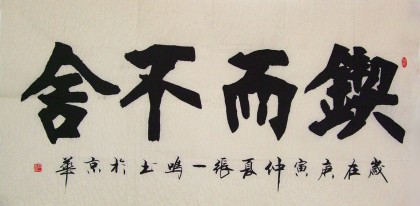 鍥而不舍
歲在庚寅仲夏張一鳴书於京華